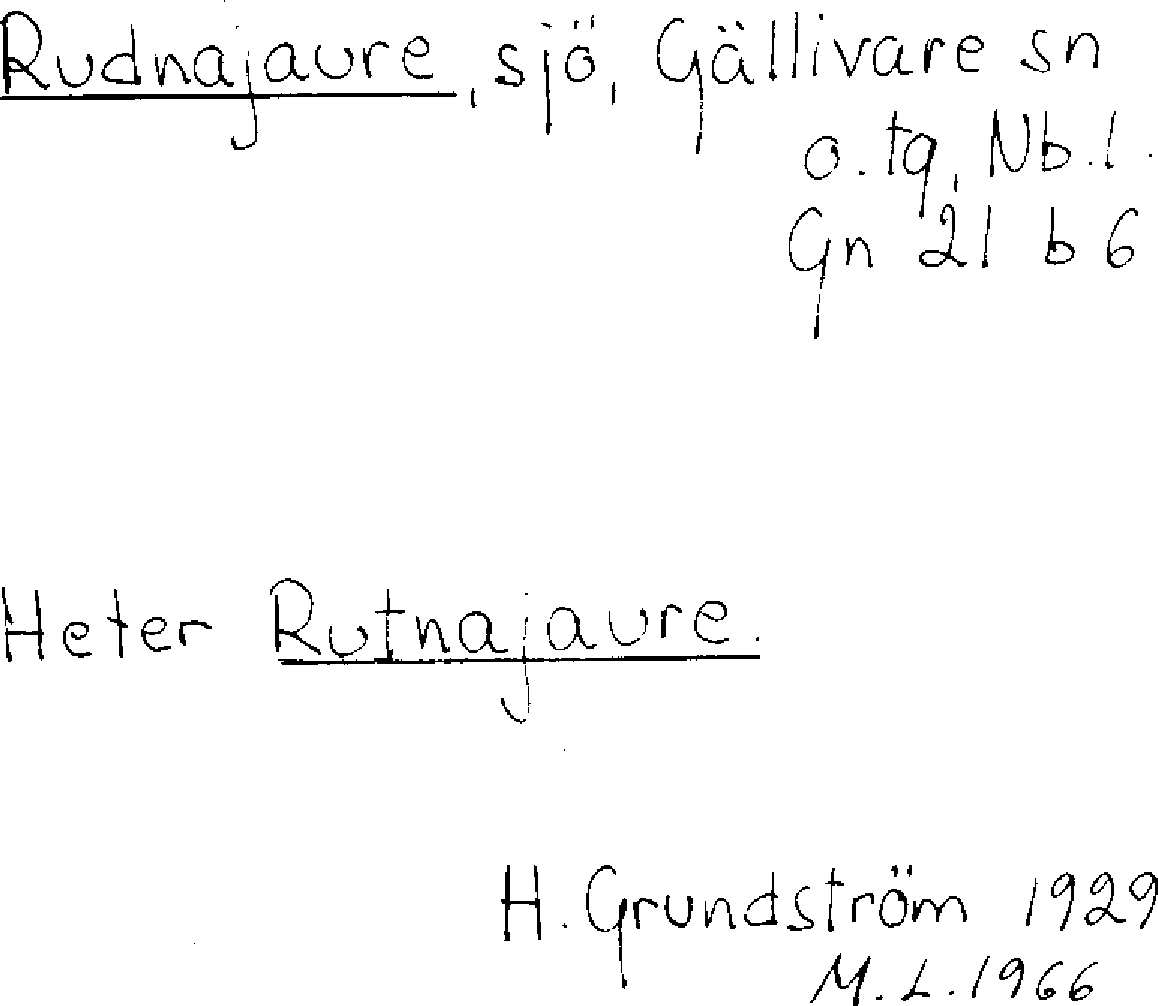 Rudnajaure, sjö, Gällivare sn
o. tg, Nb. l.
Gn 21 b 6
Heter Rutnajaure.
H. Grundström 1929
M. L. 1966